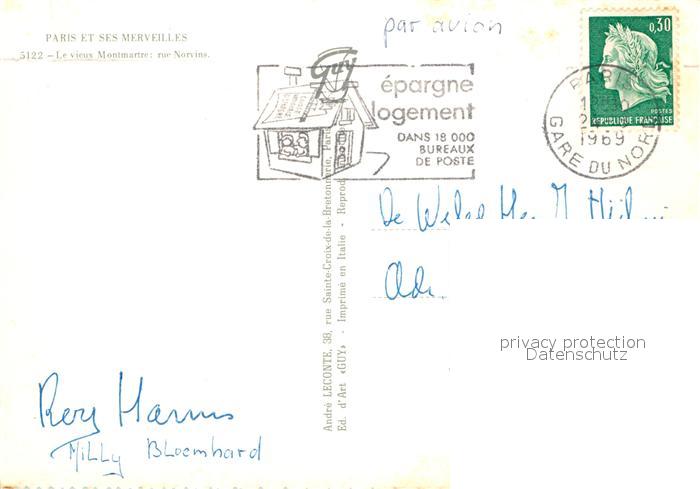 PARIS ET SES MERVEILLES
5122 - Le vieux Montmartre: rue Norvins.
par avion
Guy
épargne
logement
DANS 18 000
BUREAUX
DE POSTE
0,30
POSTES
REPUBLIQUE FRANÇAISE
PARIS
1969
GARE DU NORD
André LECONTE, 38, rue Sainte-Croix-de-la-Bretonnerie, Paris
Ed. d'Art «GUY» - Imprimé en Italie - Reprod
De
privacy protection
Datenschutz
Milly Bloemhard